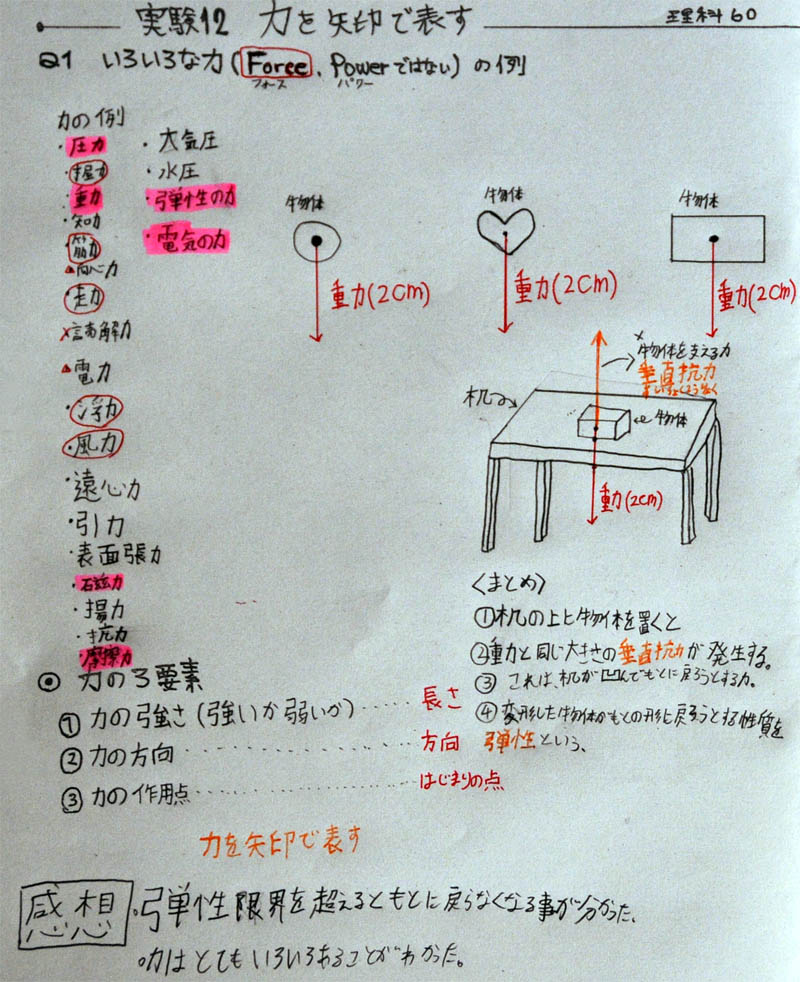 実験12 力を矢印で表す
理科60
Q1 いろいろな力(Force、Powerではない)の例
フォース パワー
力の例
・圧力
・握力
・重力
・知力
・筋力
▲向心力
・走力
×読解力
▲電力
・浮力
・風力
・遠心力
・引力
・表面張力
・磁力
・揚力
・抗力
・摩擦力
・大気圧
・水圧
・弾性の力
・電気の力
物体
重力(2cm)
物体
重力(2cm)
物体
重力(2cm)
物体を支える力
垂直抗力
すいちょくこうりょく
机
物体
重力(2cm)
<まとめ>
①机の上に物体を置くと
②重力と同じ大きさの垂直抗力が発生する。
③ これは、机が凹んでもとに戻ろうとする力。
④ 変形した物体がもとの形に戻ろうとする性質を
弾性という。
◎ 力の3要素
① 力の強さ(強いか弱いか)……長さ
② 力の方向……方向
③ 力の作用点……はじまりの点
力を矢印で表す
感想
・弾性限界を超えるともとに戻らなくなる事が分かった。
○力はとてもいろいろあることがわかった。